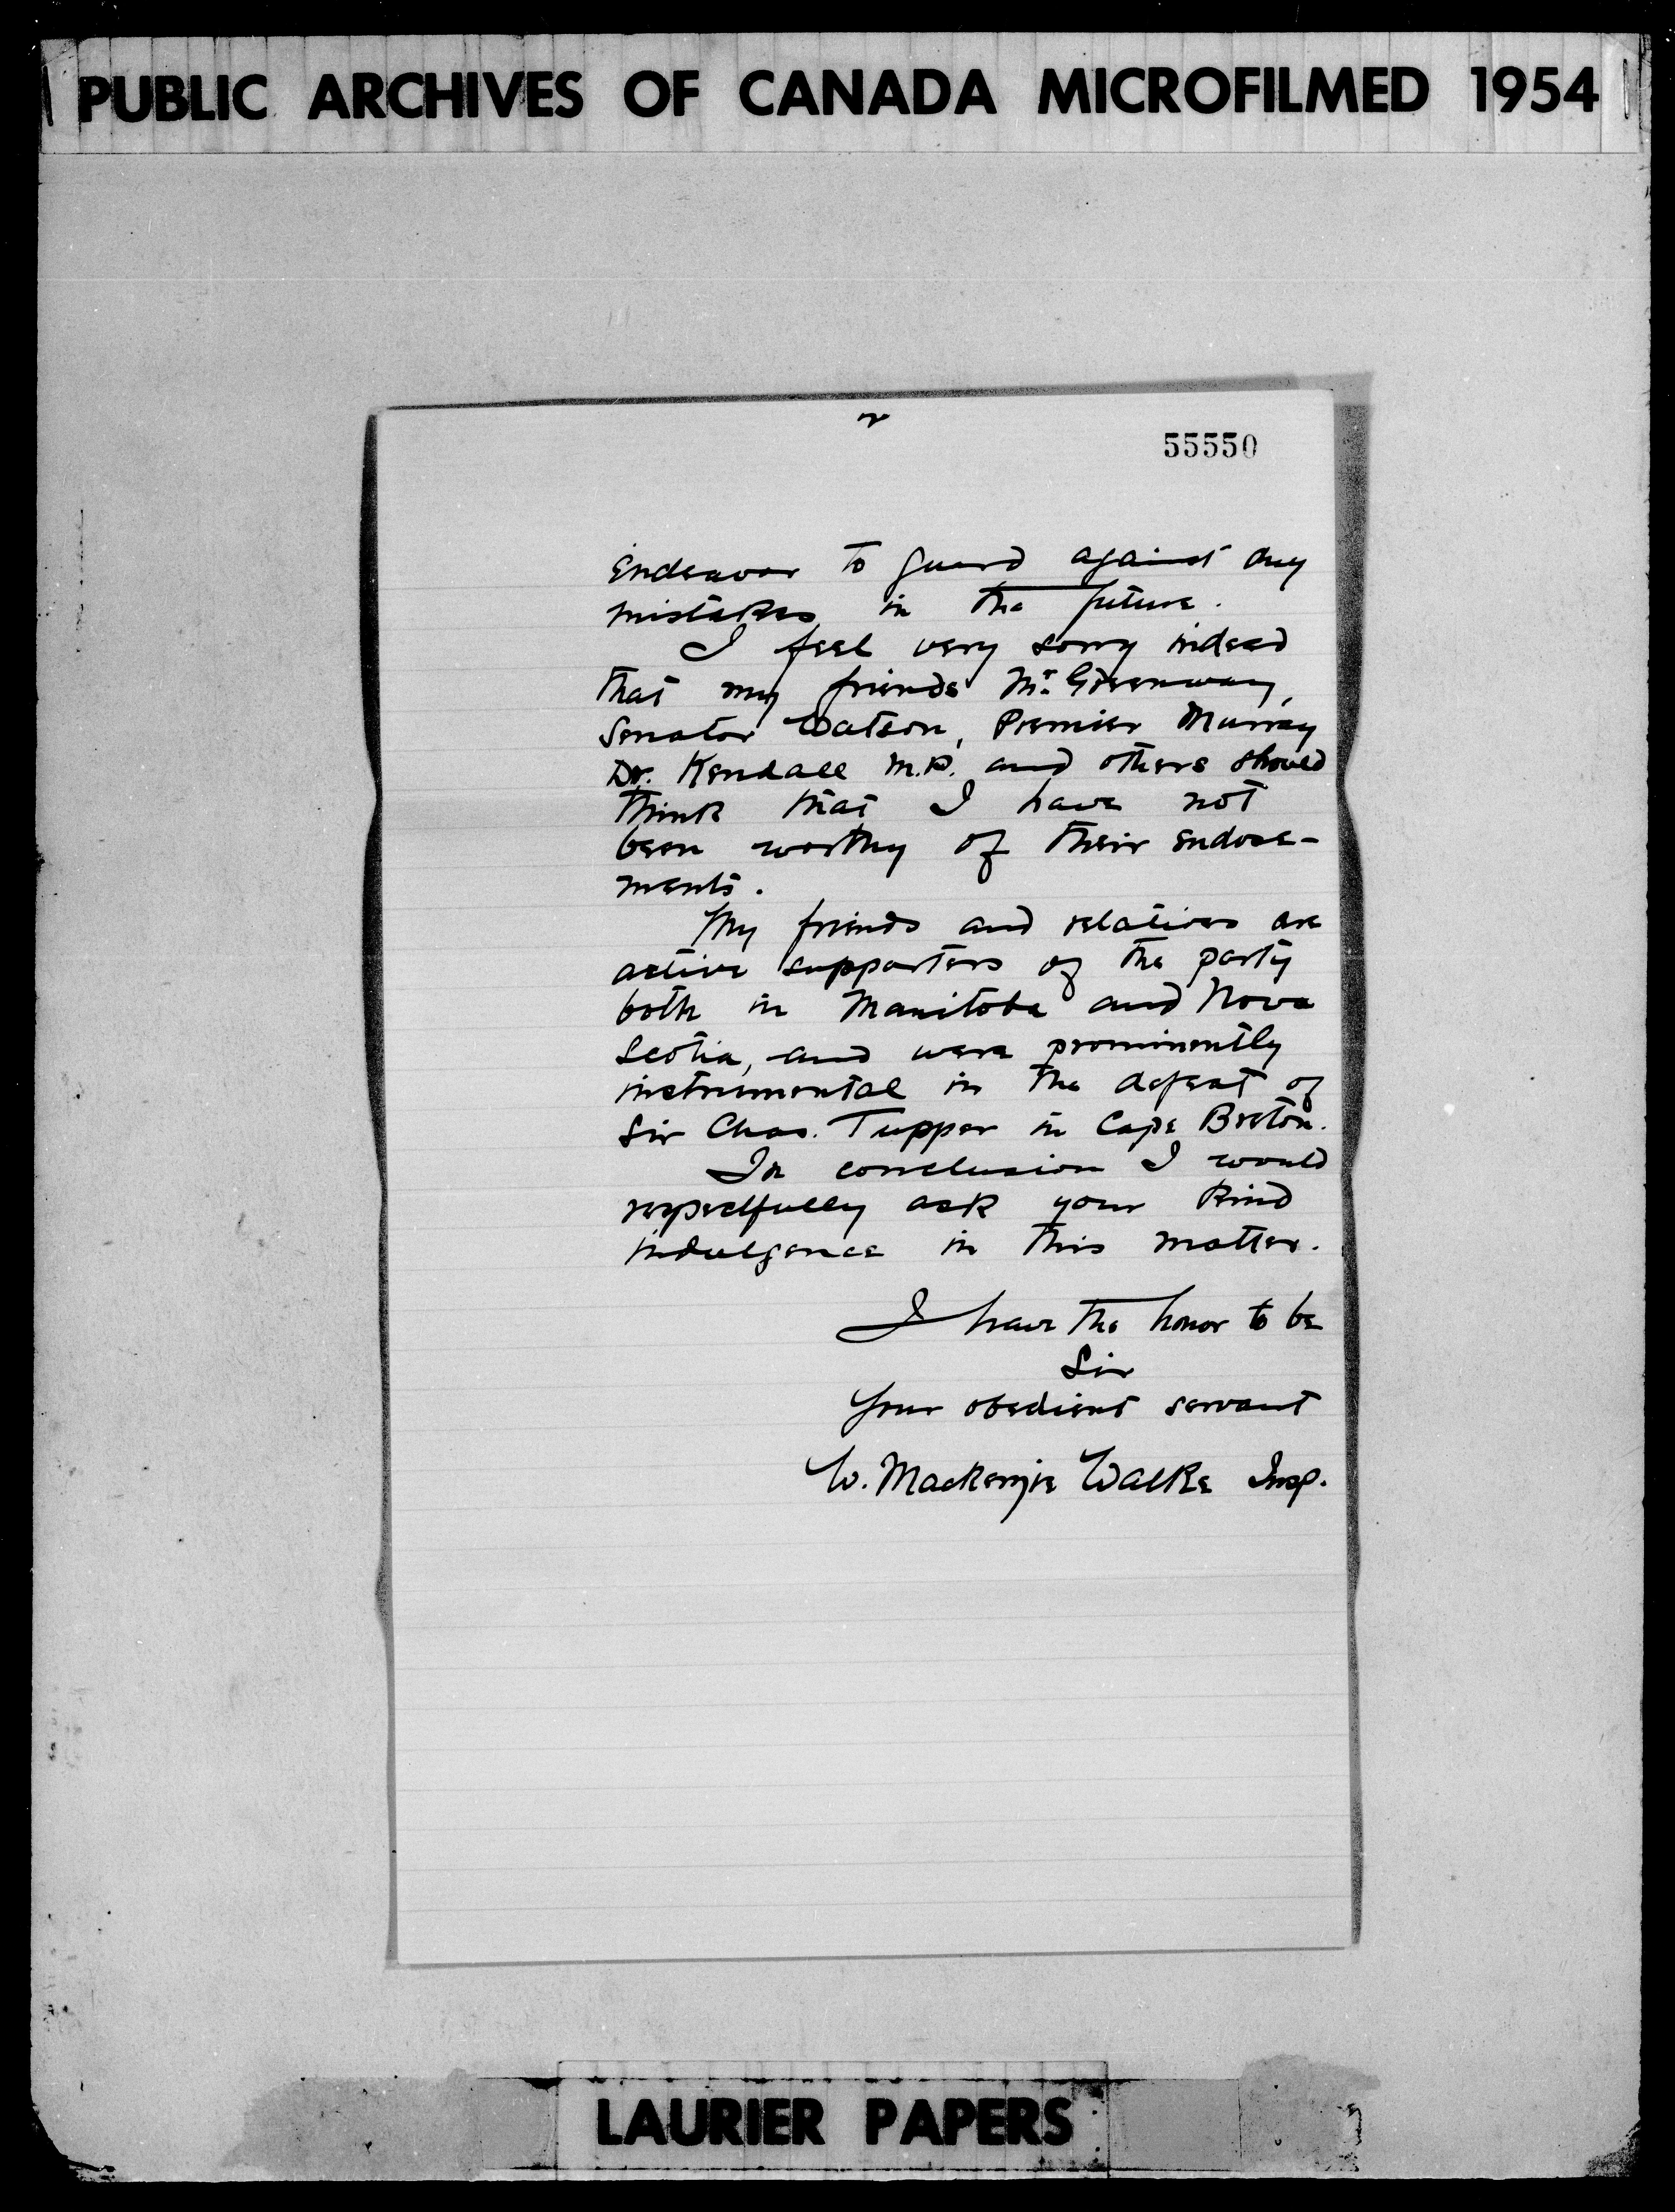 PUBLIC ARCHIVES OF CANADA MICROFILMED 1954
2
55550
endeavor to guard against any
mistakes in the future.
I feel very sorry indeed
that my friends Mr. Greenway,
Senator Watson, Premier Murray
Dr. Kendall M.P. and others should
think that I have not
been worthy of their endose-
ments.
My friends and relatives are
active supporters of the party
both in Manitoba and Nova
Scotia, and were prominently
instrumental in the defeat of
Sir Chas. Tupper in Cape Breton.
In conclusion I would
respectfully ask your kind
indulgence in this matter.
I have the honor to be
Sir
Your obedient servant
W. Mackenzie Walke Insp.
LAURIER PAPERS